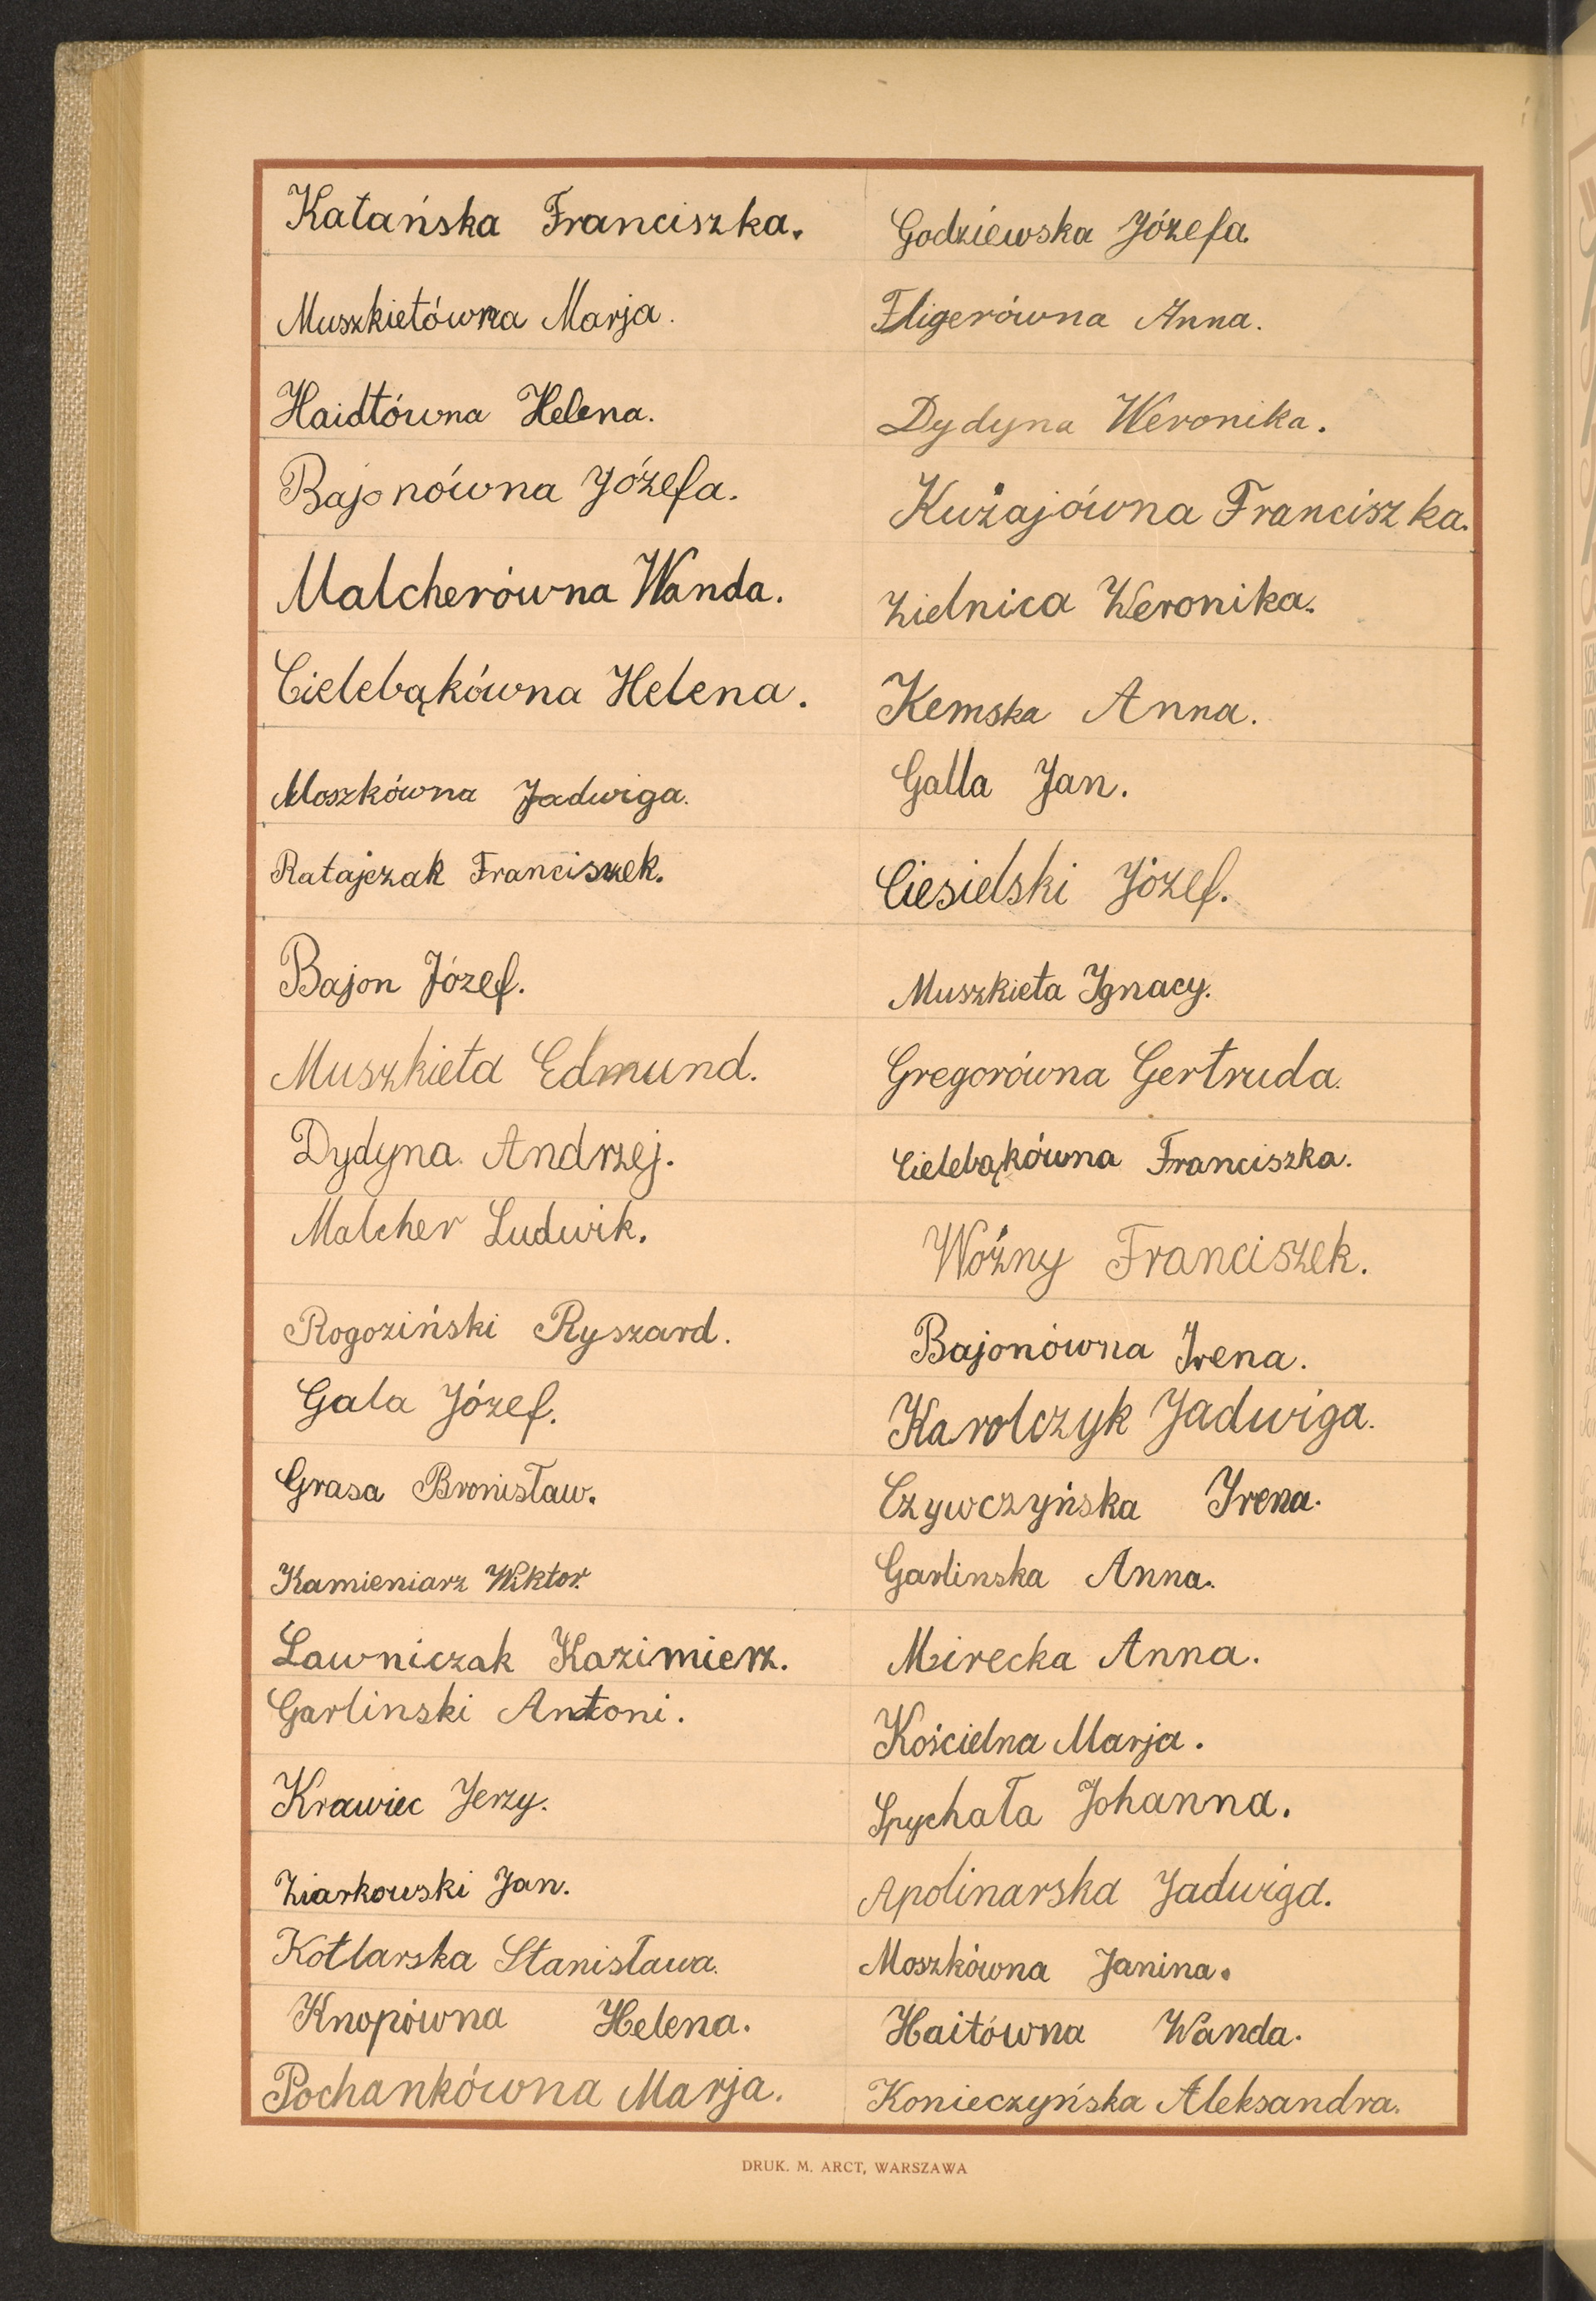 Katańska Franciszka.
Muszkietówna Marja.
Haidtówna Helena.
Bajonówna Józefa.
Malcherówna Wanda.
Cielebąkówna Helena.
Moszkówna Jadwiga.
Ratajczak Franciszek.
Bajon Józef.
Muszkieta Edmund.
Dydyna Andrzej.
Malcher Ludwik.
Rogoziński Ryszard.
Gala Józef.
Grasa Bronisław.
Kamieniarz Wiktor.
Lawniczak Kazimierz.
Garlinski Antoni.
Krawiec Jerzy.
Ziarkowski Jan.
Kotlarska Stanisława.
Knopówna Helena.
Pochankówna Marja.
Godziewska Józefa.
Fligerówna Anna.
Dydyna Weronika.
Kużajówna Franciszka.
Zielnica Weronika.
Kemska Anna.
Galla Jan.
Ciesielski Józef.
Muszkieta Ignacy.
Gregorówna Gertruda.
Cielebąkówna Franciszka.
Woźny Franciszek.
Bajonówna Irena.
Karolczyk Jadwiga.
Czywczyńska Irena.
Garlinska Anna.
Mirecka Anna.
Kościelna Marja.
Spychała Johanna.
Apolinarska Jadwiga.
Moszkówna Janina.
Haitówna Wanda.
Konieczyńska Aleksandra.
DRUK. M. ARCT, WARSZAWA